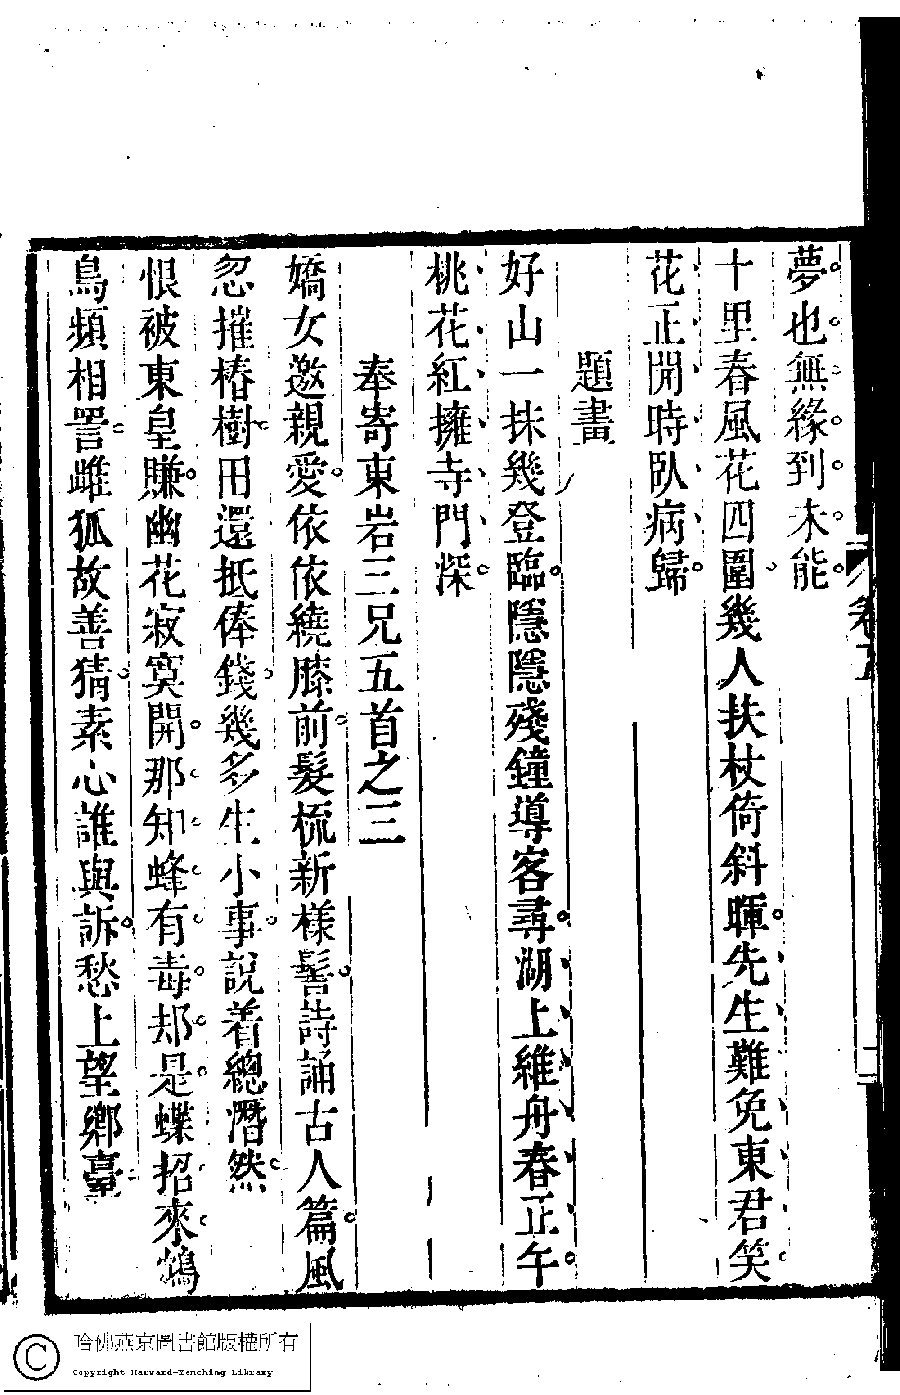 夢也無緣到未能
十里春風花四圍幾人扶杖倚斜暉先生難免東君笑
花正開時臥病歸
題畫
好山一抹幾登臨隱隱殘鐘導客尋湖上維舟春正午
桃花紅擁寺門深
奉寄東岩三兄五首之三
嬌女邀親愛依依繞膝前髮梳新樣髻詩誦古人篇風
忽摧椿樹田還抵俸錢幾多生小事說着總潛然
恨被東皇賺幽花寂寞開那知蜂有毒却是蝶招來鴆
鳥頻相詈雌狐故善猜素心誰與訴愁上望鄉臺
卷五
哈佛燕京圖書館版權所有
Copyright Harvard-Yenching Library